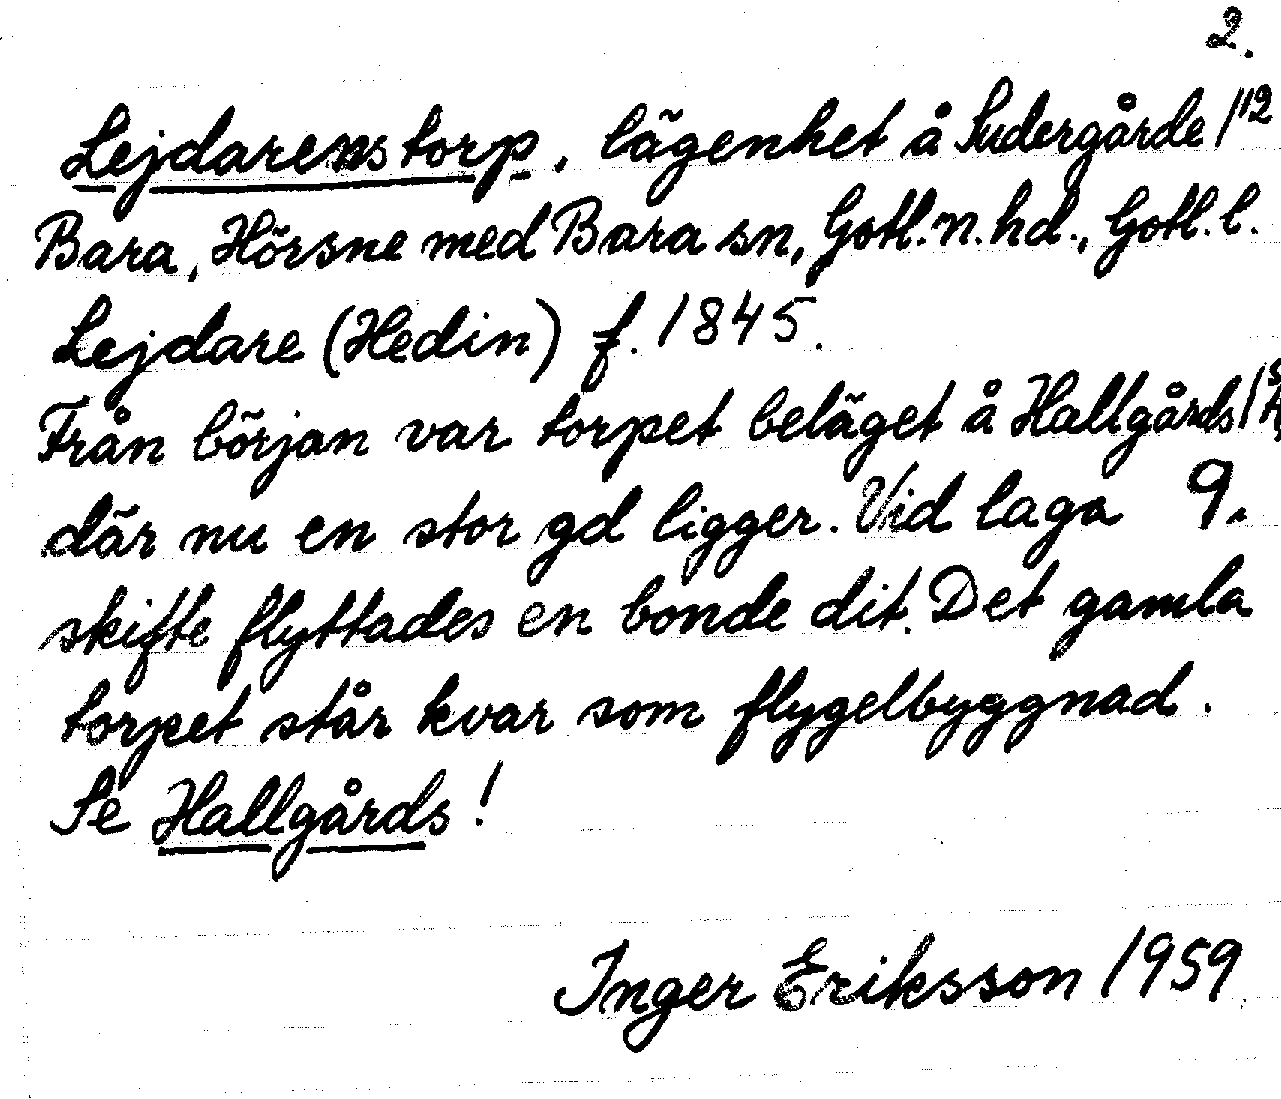 2.
Lejdarens torp, lägenhet å Sudergårde 1/12
Bara, Hörsne med Bara sn, Gotl. n. hd., Gotl. l.
Lejdare (Hedin) f. 1845.
Från början var torpet beläget å Hallgårds
där nu en stor gd ligger. Vid laga 9.
skifte flyttades en bonde dit. Det gamla
torpet står kvar som flygelbyggnad.
Se Hallgårds!
Inger Eriksson 1959